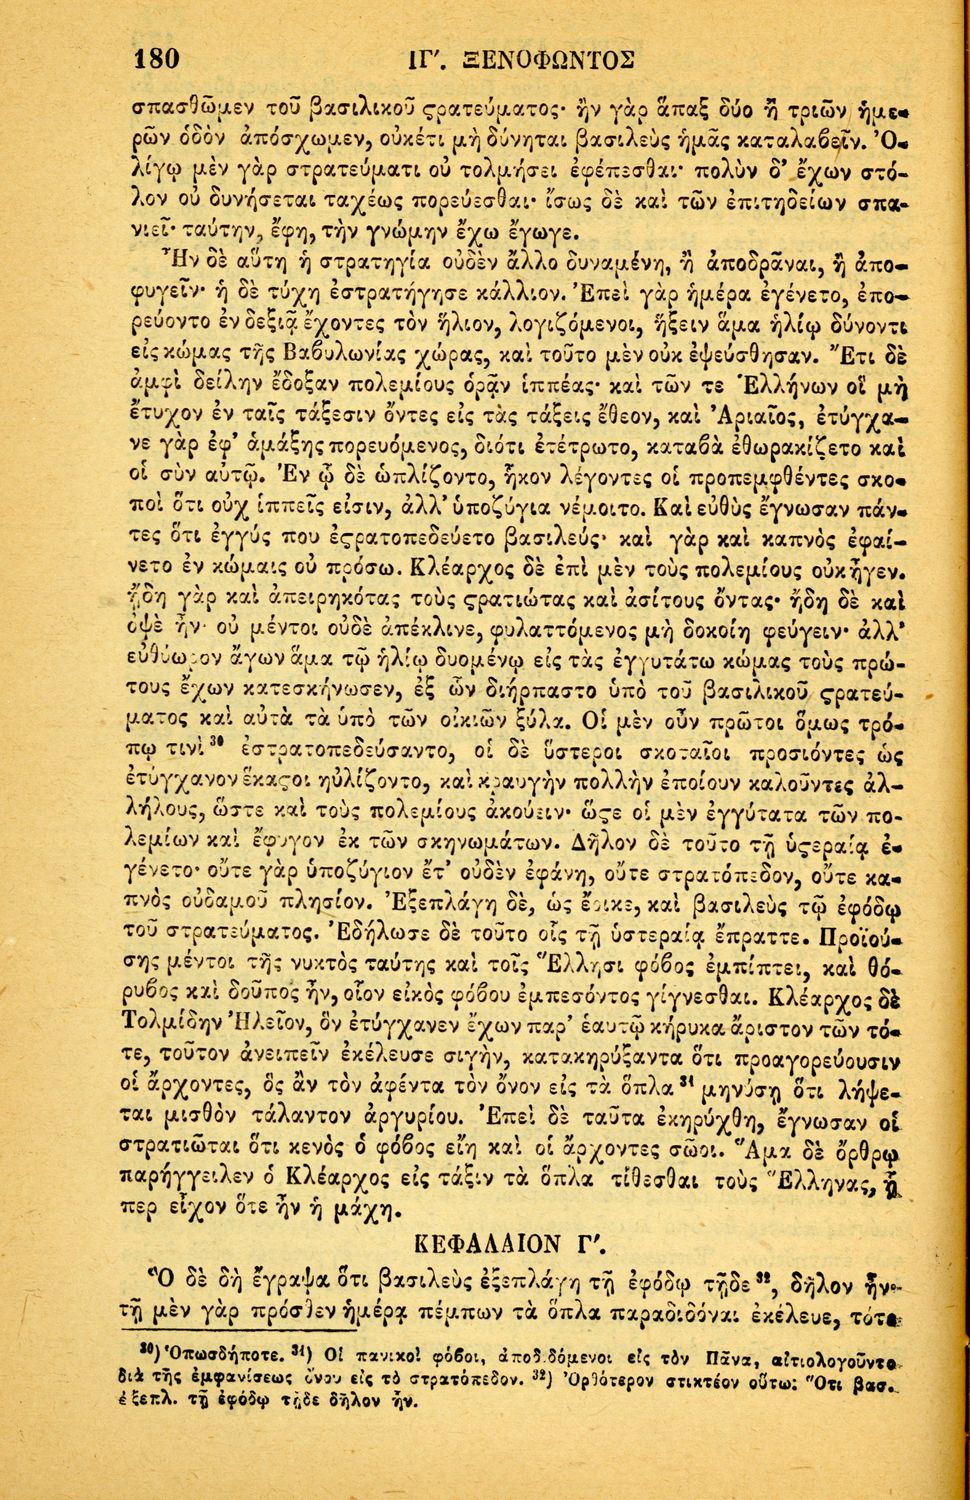 180 ΙΓ'. ΞΕΝΟΦΩΝΤΟΣ
σπασθῶμεν τοῦ βασιλικοῦ ϛρατεύματος· ἢν γὰρ ἅπαξ δύο ἢ τριῶν ἡμε-
ρῶν ὁδὸν ἀπόσχωμεν, οὐκέτι μὴ δύνηται βασιλεὺς ἡμᾶς καταλαβεῖν. Ὀ-
λίγῳ μὲν γὰρ στρατεύματι οὐ τολμήσει ἐφέπεσθαι· πολὺν δ' ἔχων στό-
λον οὐ δυνήσεται ταχέως πορεύεσθαι· ἴσως δὲ καὶ τῶν ἐπιτηδείων σπα-
νιεῖ· ταύτην, ἔφη, τὴν γνώμην ἔχω ἔγωγε.
Ἦν δὲ αὕτη ἡ στρατηγία οὐδὲν ἄλλο δυναμένη, ἢ ἀποδρᾶναι, ἢ ἀπο-
φυγεῖν· ἡ δὲ τύχη ἐστρατήγησε κάλλιον. Ἐπεὶ γὰρ ἡμέρα ἐγένετο, ἐπο-
ρεύοντο ἐν δεξιᾷ ἔχοντες τὸν ἥλιον, λογιζόμενοι, ἥξειν ἅμα ἡλίῳ δύνοντι
εἰς κώμας τῆς Βαβυλωνίας χώρας, καὶ τοῦτο μὲν οὐκ ἐψεύσθησαν. Ἔτι δὲ
ἀμφὶ δείλην ἔδοξαν πολεμίους ὁρᾷν ἱππέας· καὶ τῶν τε Ἑλλήνων οἳ μὴ
ἔτυχον ἐν ταῖς τάξεσιν ὄντες εἰς τὰς τάξεις ἔθεον, καὶ Ἀριαῖος, ἐτύγχα-
νε γὰρ ἐφ' ἁμάξης πορευόμενος, διότι ἐτέτρωτο, καταβὰ ἐθωρακίζετο καὶ
οἱ σὺν αὐτῷ. Ἐν ᾧ δὲ ὡπλίζοντο, ἧκον λέγοντες οἱ προπεμφθέντες σκο-
ποὶ ὅτι οὐχ ἱππεῖς εἰσιν, ἀλλ' ὑποζύγια νέμοιτο. Καὶ εὐθὺς ἔγνωσαν πάν-
τες ὅτι ἐγγύς που ἐϛρατοπεδεύετο βασιλεύς· καὶ γὰρ καὶ καπνὸς ἐφαί-
νετο ἐν κώμαις οὐ πρόσω. Κλέαρχος δὲ ἐπὶ μὲν τοὺς πολεμίους οὐκ ἦγεν.
ᾔδη γὰρ καὶ ἀπειρηκότας τοὺς ϛρατιώτας καὶ ἀσίτους ὄντας· ἤδη δὲ καὶ
ὀψὲ ἦν· οὐ μέντοι οὐδὲ ἀπέκλινε, φυλαττόμενος μὴ δοκοίη φεύγειν· ἀλλ'
εὐθύωρον ἄγων ἅμα τῷ ἡλίῳ δυομένῳ εἰς τὰς ἐγγυτάτω κώμας τοὺς πρώ-
τους ἔχων κατεσκήνωσεν, ἐξ ὧν διήρπαστο ὑπὸ τοῦ βασιλικοῦ ϛρατεύ-
ματος καὶ αὐτὰ τὰ ὑπὸ τῶν οἰκιῶν ξύλα. Οἱ μὲν οὖν πρῶτοι ὅμως τρό-
πῳ τινὶ ³⁰ ἐστρατοπεδεύσαντο, οἱ δὲ ὕστεροι σκοταῖοι προσιόντες ὡς
ἐτύγχανον ἕκαϛοι ηὐλίζοντο, καὶ κραυγὴν πολλὴν ἐποίουν καλοῦντες ἀλ-
λήλους, ὥστε καὶ τοὺς πολεμίους ἀκούειν· ὥϛε οἱ μὲν ἐγγύτατα τῶν πο-
λεμίων καὶ ἔφυγον ἐκ τῶν σκηνωμάτων. Δῆλον δὲ τοῦτο τῇ ὑϛεραίᾳ ἐ-
γένετο· οὔτε γὰρ ὑποζύγιον ἔτ' οὐδὲν ἐφάνη, οὔτε στρατόπεδον, οὔτε κα-
πνὸς οὐδαμοῦ πλησίον. Ἐξεπλάγη δὲ, ὡς ἔοικε, καὶ βασιλεὺς τῷ ἐφόδῳ
τοῦ στρατεύματος. Ἐδήλωσε δὲ τοῦτο οἷς τῇ ὑστεραίᾳ ἔπραττε. Προϊού-
σης μέντοι τῆς νυκτὸς ταύτης καὶ τοῖς Ἕλλησι φόβος ἐμπίπτει, καὶ θό-
ρυβος καὶ δοῦπος ἦν, οἷον εἰκὸς φόβου ἐμπεσόντος γίγνεσθαι. Κλέαρχος δὲ
Τολμίδην Ἠλεῖον, ὃν ἐτύγχανεν ἔχων παρ' ἑαυτῷ κήρυκα ἄριστον τῶν τό-
τε, τοῦτον ἀνειπεῖν ἐκέλευσε σιγὴν, κατακηρύξαντα ὅτι προαγορεύουσιν
οἱ ἄρχοντες, ὃς ἂν τὸν ἀφέντα τὸν ὄνον εἰς τὰ ὅπλα ³¹ μηνύσῃ ὅτι λήψε-
ται μισθὸν τάλαντον ἀργυρίου. Ἐπεὶ δὲ ταῦτα ἐκηρύχθη, ἔγνωσαν οἱ
στρατιῶται ὅτι κενὸς ὁ φόβος εἴη καὶ οἱ ἄρχοντες σῶοι. Ἅμα δὲ ὄρθρῳ
παρήγγειλεν ὁ Κλέαρχος εἰς τάξιν τὰ ὅπλα τίθεσθαι τοὺς Ἕλληνας, ᾗ
περ εἶχον ὅτε ἦν ἡ μάχη.
ΚΕΦΑΛΑΙΟΝ Γ'.
Ὃ δὲ δὴ ἔγραψα ὅτι βασιλεὺς ἐξεπλάγη τῇ ἐφόδῳ τῇδε ³², δῆλον ἦν·
τῇ μὲν γὰρ πρόσθεν ἡμέρᾳ πέμπων τὰ ὅπλα παραδιδόναι ἐκέλευε, τότε
³⁰) Ὁπωσδήποτε. ³¹) Οἱ πανικοὶ φόβοι, ἀποδιδόμενοι εἰς τὸν Πᾶνα, αἰτιολογοῦντο
διὰ τῆς ἐμφανίσεως ὄνου εἰς τὸ στρατόπεδον. ³²) Ὀρθότερον στικτέον οὕτω: Ὅτι βασ.
ἐξεπλ. τῇ ἐφόδῳ τῇδε δῆλον ἦν.